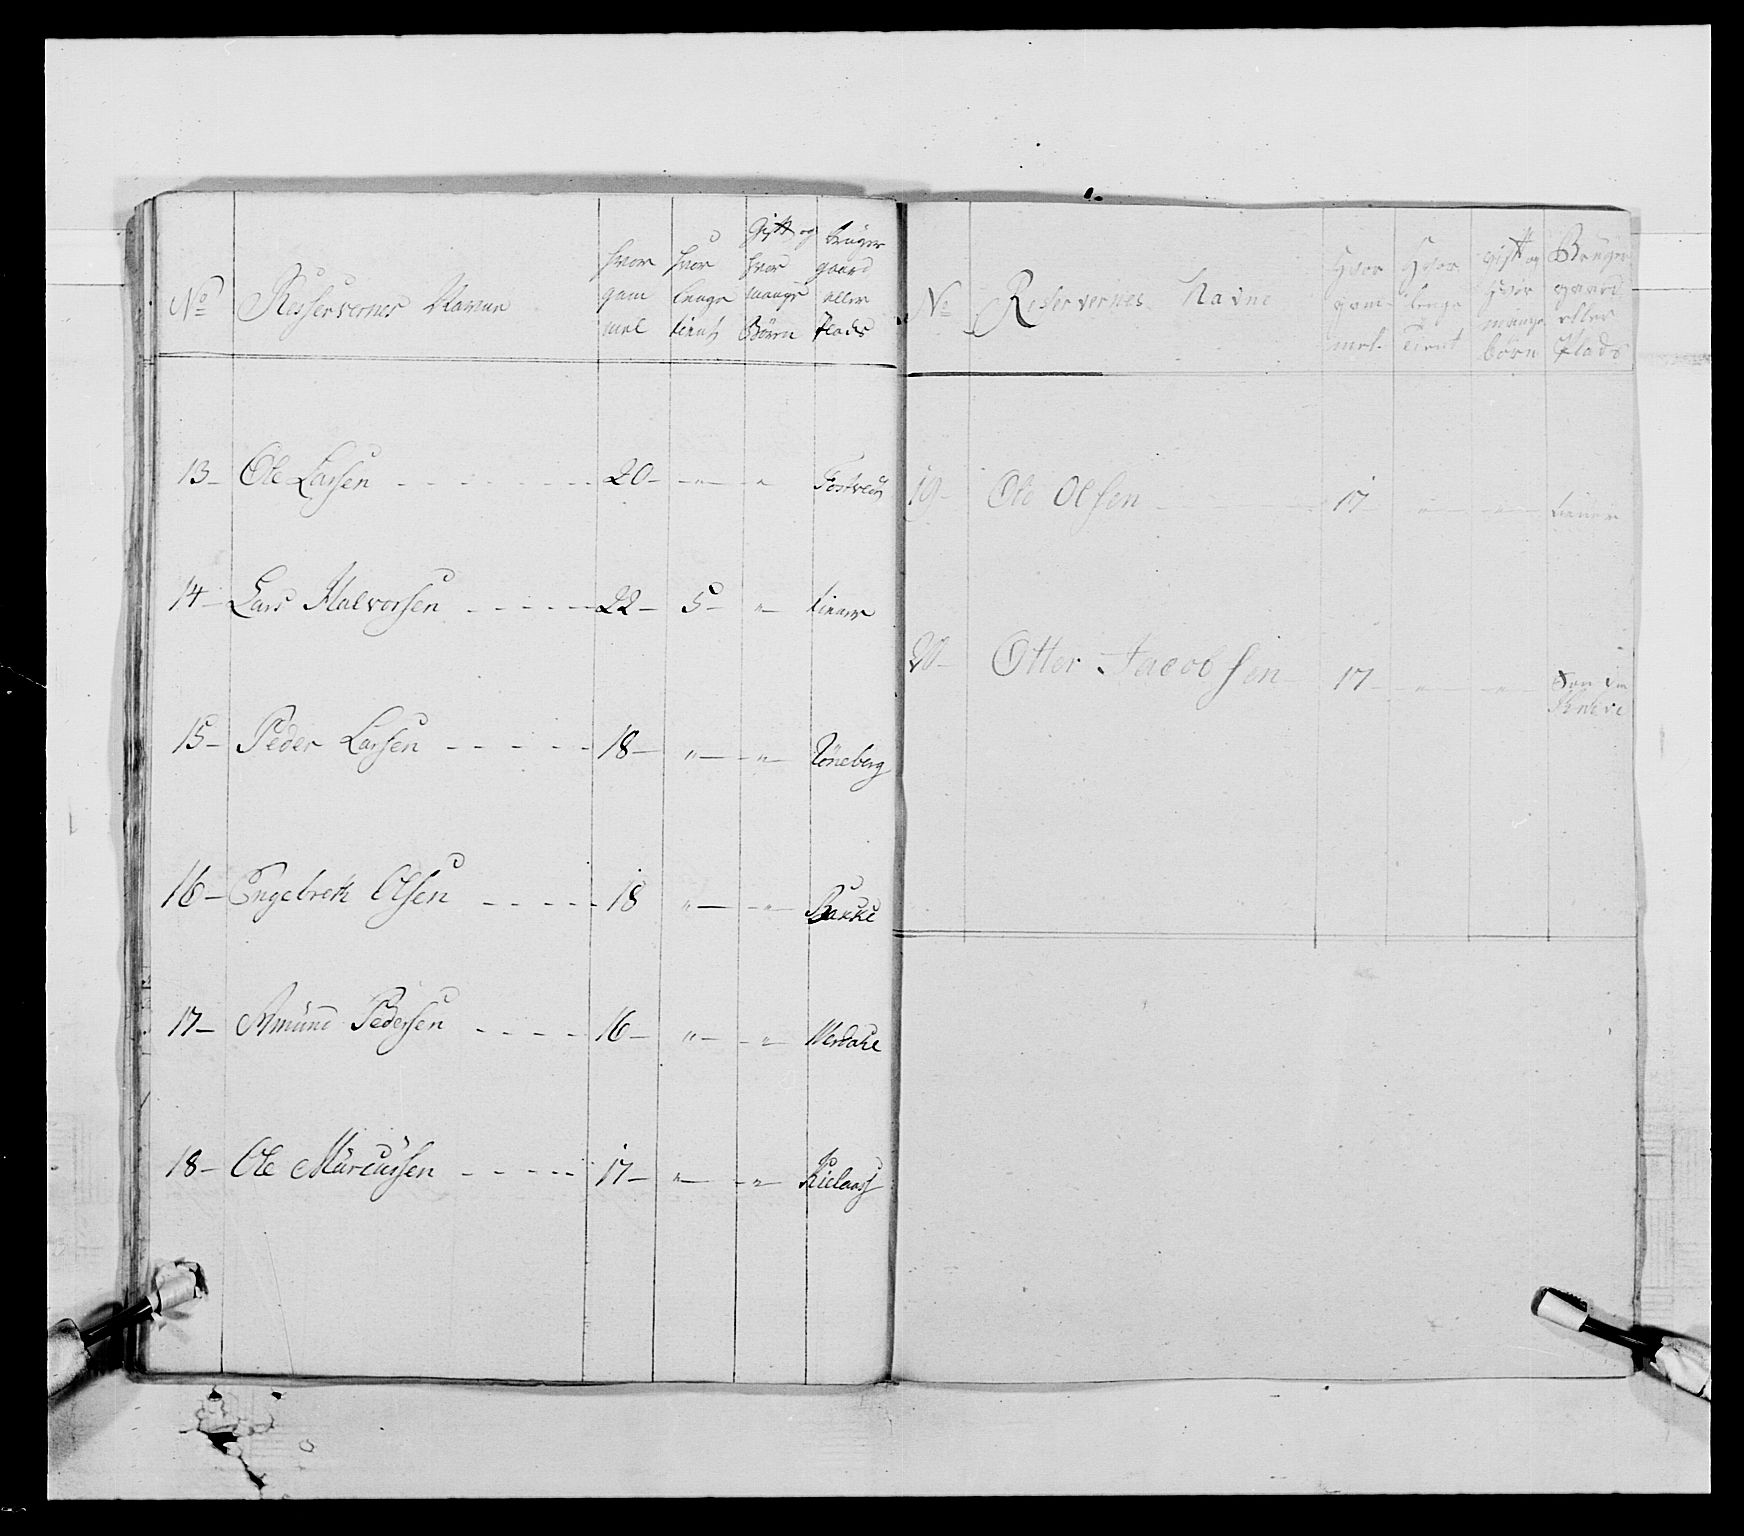 No Resserverner Navne hvor gam mel hvor lenge tient Gift og hvor mange Börn bruger gaard eller Plads
13 - Ole Larsen - - - - - - 20 - " - "
14 - Lars Halvorsen - - - - - 22 - 5 - " - tiener
15 - Peder Larsen - - - - - 18 - " - " - Röneberg
16 - Engebreth Olsen - - - - 18 " - " - Bakke
17 - Amund Pedersen - - - - 16 - " - " - Werdahl
18 - Ole Marcussen - - - - 17 - " - "
No Reservernes Navne Hvor gam- mel. Hvor lenge tient gift og hvor mange börn Bruger gaard eller Plads
19 - Ole Olsen - - - - - 17 " - " - tiener
20 - Otter Jacobsen 17 - " - "